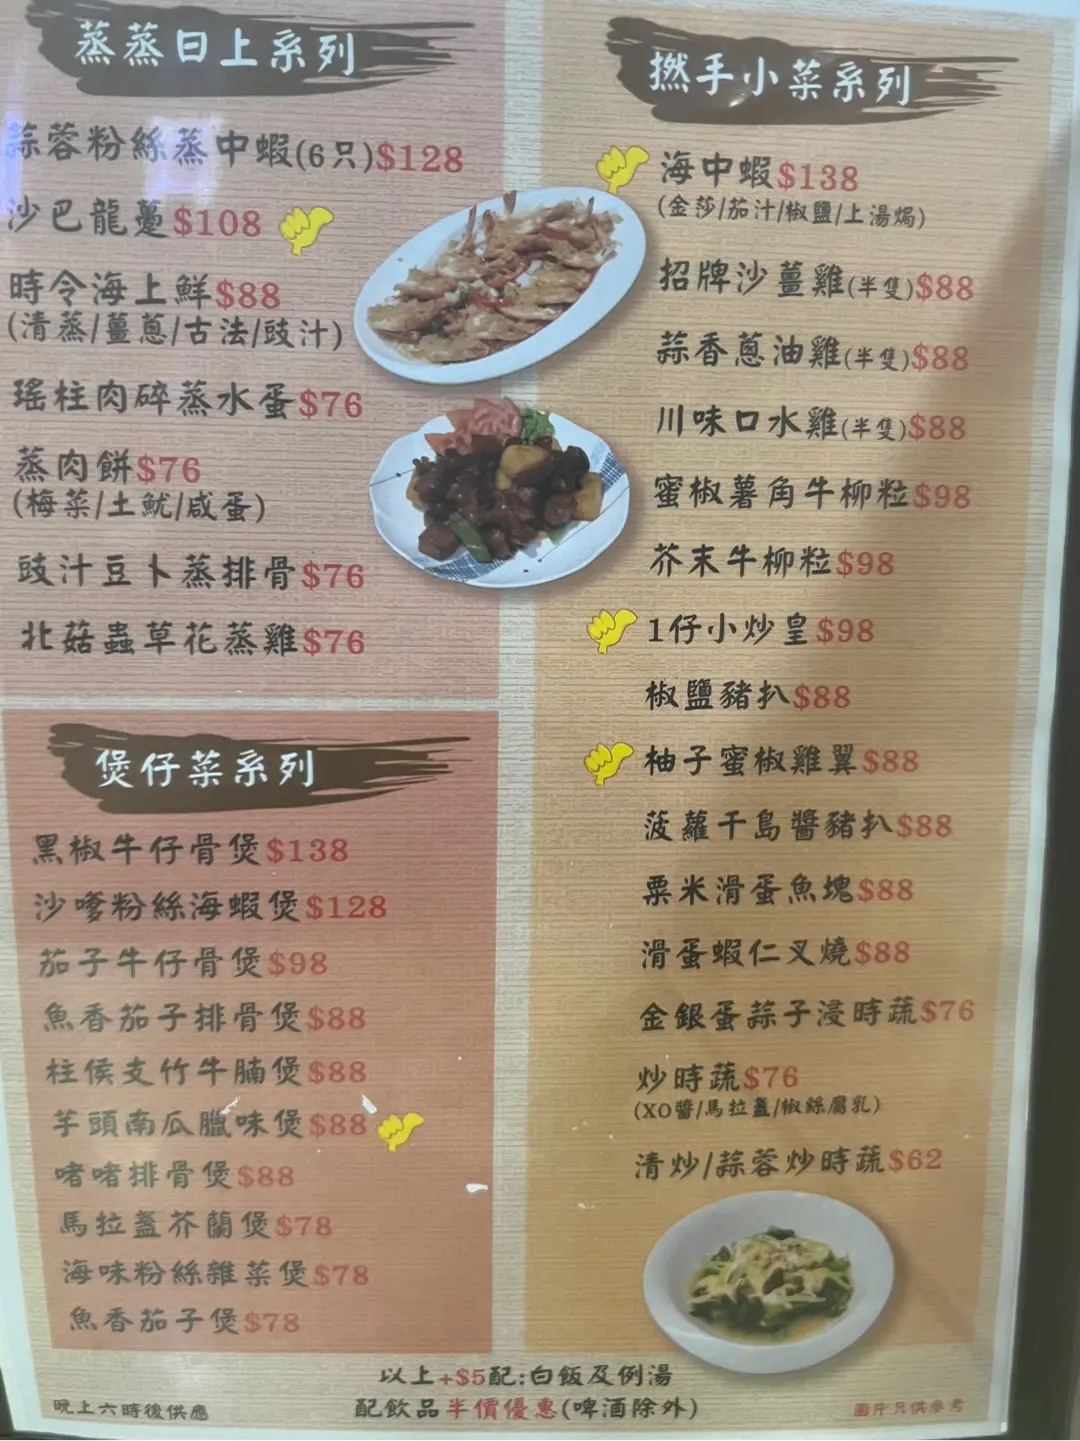 蒸蒸日上系列
蒜蓉粉絲蒸中蝦(6只)$128
沙巴龍躉$108
時令海上鮮$88
(清蒸/薑蔥/古法/豉汁)
瑤柱肉碎蒸水蛋$76
蒸肉餅$76
(梅菜/土魷/咸蛋)
豉汁豆卜蒸排骨$76
北菇蟲草花蒸雞$76
煲仔菜系列
黑椒牛仔骨煲$138
沙嗲粉絲海蝦煲$128
茄子牛仔骨煲$98
魚香茄子排骨煲$88
柱侯支竹牛腩煲$88
芋頭南瓜臘味煲$88
啫啫排骨煲$88
馬拉盞芥蘭煲$78
海味粉絲雜菜煲$78
魚香茄子煲$78
撚手小菜系列
海中蝦$138
(金莎/茄汁/椒鹽/上湯焗)
招牌沙薑雞(半隻)$88
蒜香蔥油雞(半隻)$88
川味口水雞(半隻)$88
蜜椒薯角牛柳粒$98
芥末牛柳粒$98
1仔小炒皇$98
椒鹽豬扒$88
柚子蜜椒雞翼$88
菠蘿千島醬豬扒$88
粟米滑蛋魚塊$88
滑蛋蝦仁叉燒$88
金銀蛋蒜子浸時蔬$76
炒時蔬$76
(XO醬/馬拉盞/椒絲腐乳)
清炒/蒜蓉炒時蔬$62
以上+$5配:白飯及例湯
配飲品半價優惠(啤酒除外)
晚上六時後供應
圖片只供參考